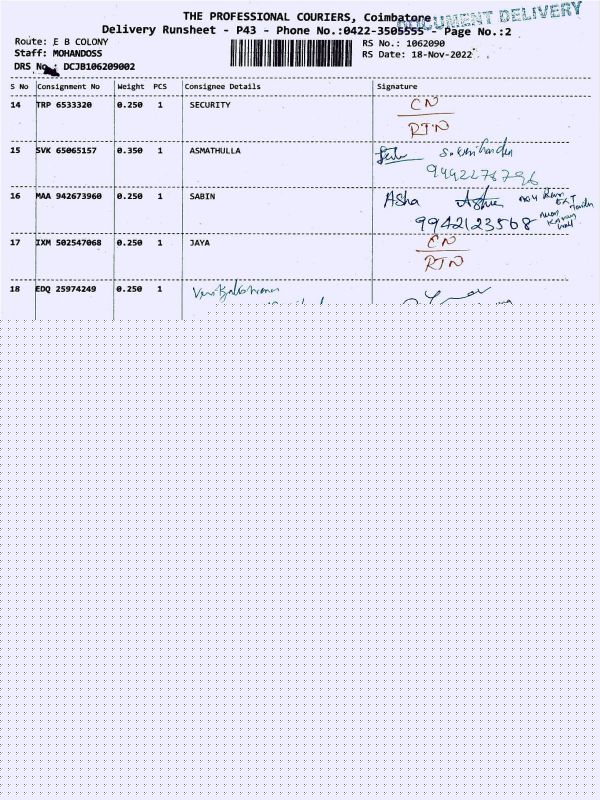 THE PROFESSIONAL COURIERS, Coimbatore
DOCUMENT DELIVERY
Delivery Runsheet - P43 - Phone No.:0422-3505555 - Page No.:2
Route: E B COLONY
RS No.: 1062090
Staff: MOHANDOSS
RS Date: 18-Nov-2022
DRS No.: DCJB106209002
S No Consignment No Weight PCS Consignee Details Signature
14 TRP 6533320 0.250 1 SECURITY CN
RTN
15 SVK 65065157 0.350 1 ASMATHULLA
9442278796
16 MAA 942673960 0.250 1 SABIN Asha Asha
9942123568
17 IXM 502547068 0.250 1 JAYA CN
RTN
18 EDQ 25974249 0.250 1